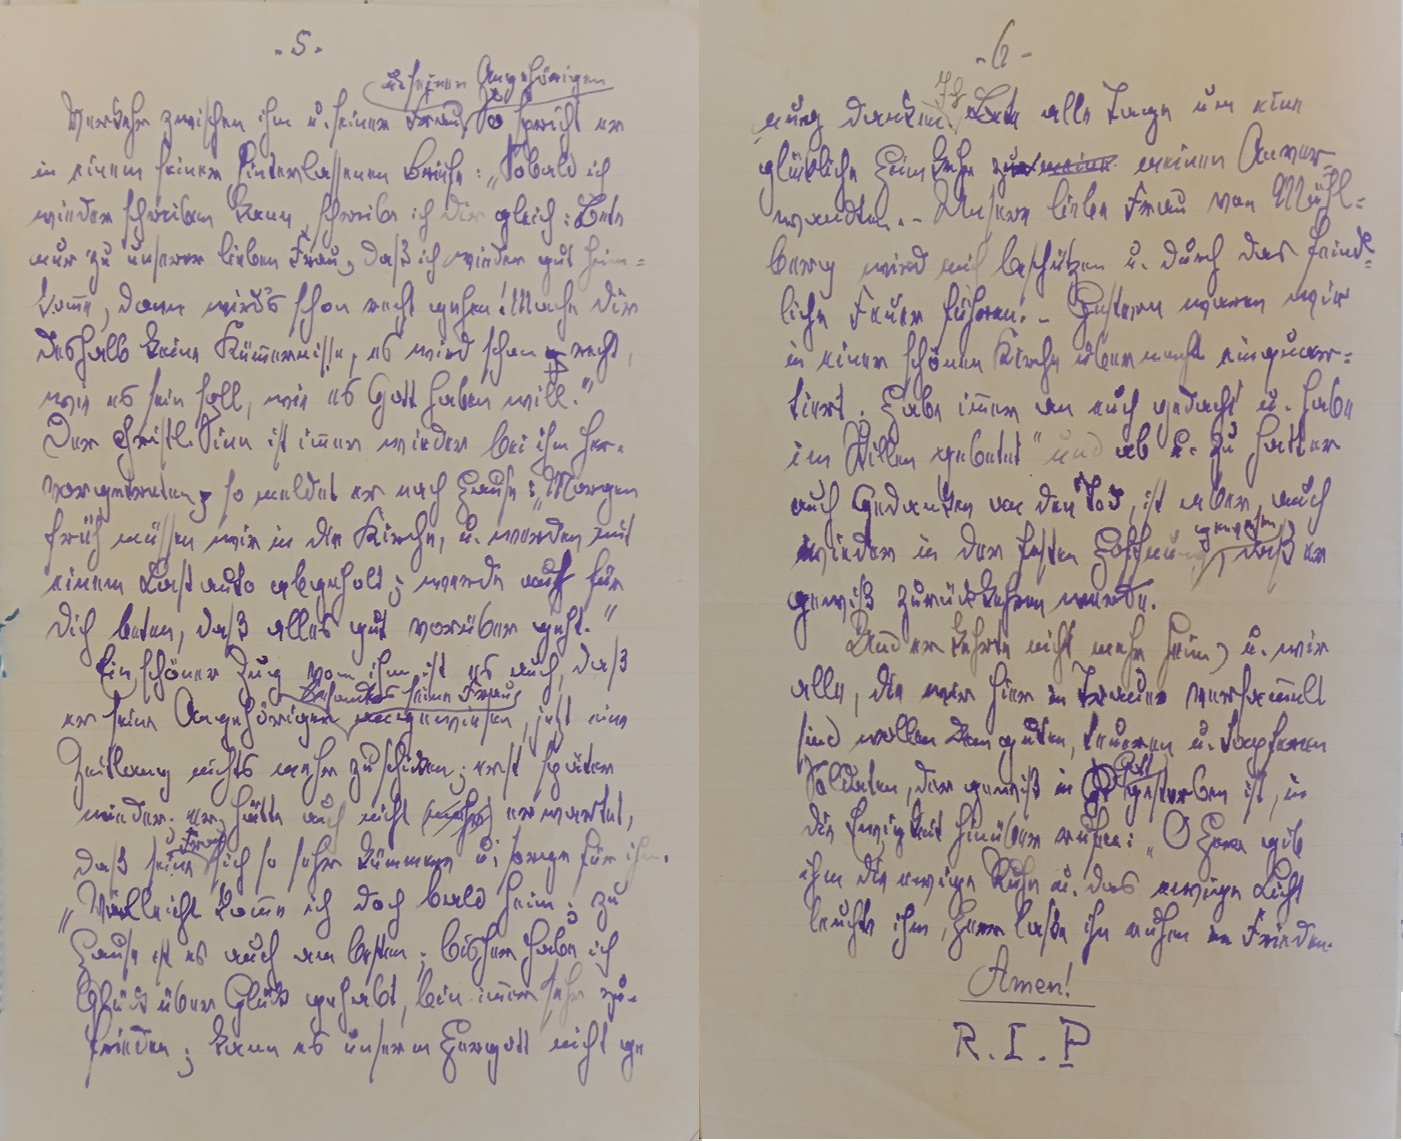 - 5 -
u. seinen Angehörigen
Verkehr zwischen ihm u. seiner Frau, So spricht er
in einem seiner hinterlassenen Briefe: „Sobald ich
wieder schreiben kann, schreibe ich dir gleich: Bete
nur zu unserer lieben Frau, daß ich wieder gut heim=
kom̅e, dann wird's schon recht gehen! Mache dir
deshalb keine Küm̅ernisse, es wird schon recht,
wie es sein soll, wie es Gott haben will."
Der christl. Sinn ist im̅er wieder bei ihm her-
vorgetreten, so meldet er nach Hause: „Morgen
früh müssen wir in die Kirche, u. werden mit
einem Lastauto abgeholt; werde auch für
dich beten, daß alles gut vorüber geht."
Ein schöner Zug von ihm ist es auch, daß
besonders seine Frau,
er seine Angehörigen, angewiesen, jetzt eine
Zeitlang nichts mehr zu schicken; erst später
wieder. er hätte auch nicht (mehr) erwartet,
Frau
daß seine sich so sehr kümmere u. sorge für ihn.
„Vielleicht kom̅e ich doch bald heim; zu
Hause ist es auch am besten; bisher habe ich
Glück über Glück gehabt, bin im̅er sehr zu-
frieden; kann es unserm Herrgott nicht ge
- 6 -
Ich
nug danken. Bete alle Tage um eine
glückliche Heimkehr zu meine meinen Anver-
wandten. - Unsere liebe Frau von Mühl=
berg wird mich beschützen u. durch das feind=
liche Feuer führen. - Gestern waren wir
in einer schönen Kirche übernacht einquar=
tiert. Habe im̅er an euch gedacht u. habe
im Stillen gebetet" und ab u. zu hatte er
auch Gedanken an den Tod, ist aber auch
gewesen,
wieder in der festen Hoffnung, daß er
gewiß zurückkehren werde.
Und er kehrte nicht mehr heim, u. wir
alle, die wir hier in Trauer versam̅elt
sind wollen dem guten, teueren u. tapferen
Gott
Soldaten, der gewiß in gestorben ist, in
die Ewigkeit hinüber rufen: „O Herr gib
ihm die ewige Ruhe u. das ewige Licht
leuchte ihm, Herr laße ihn ruhen im Frieden.
Amen!
R. I. P